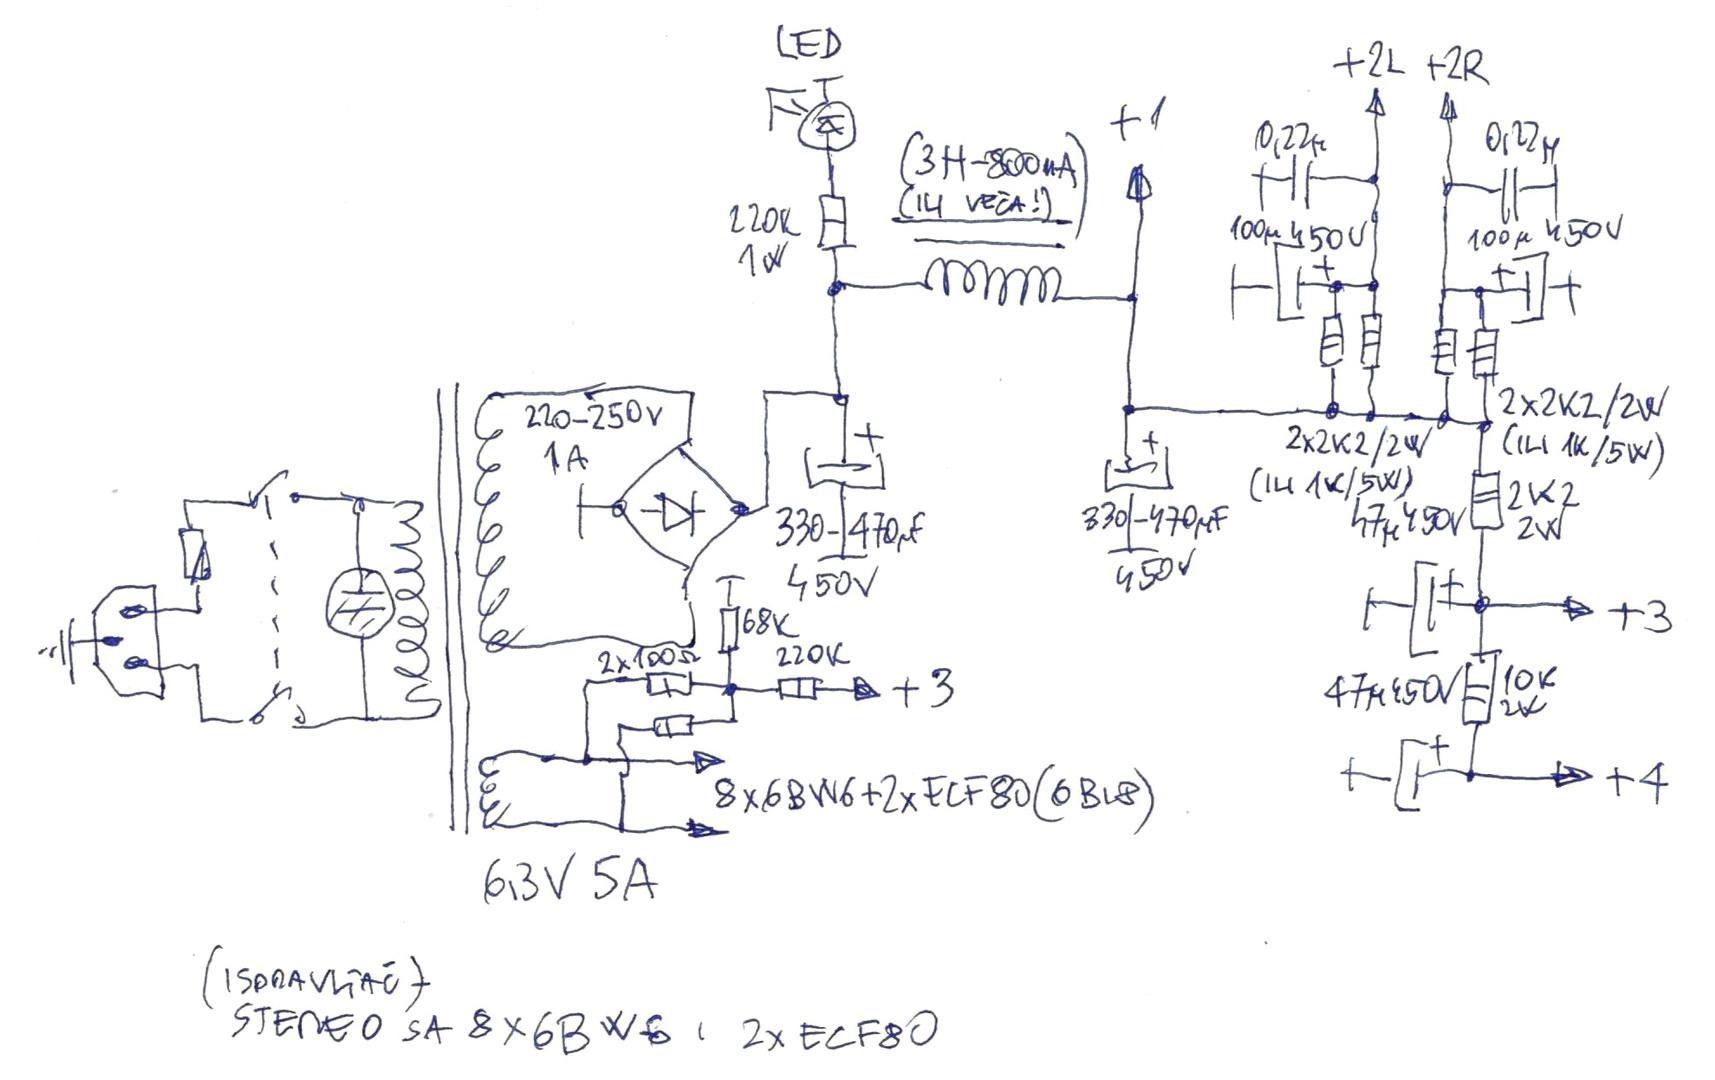 LED
+2L +2R
+1
0,22µ
0,22µ
(3H-800mA)
(ILI VEĆA!)
220K
1W
100µ 450V
100µ 450V
220-250V
1A
+
2x2K2/2W
(ILI 1K/5W)
2x2K2/2W
(ILI 1K/5W)
330-470µF
450V
+
330-470µF
450V
47µ 450V
2K2
2W
+3
68K
2x100Ω
220K
+3
47µ 450V
10K
+4
8x6BW6+2xECF80(6BL8)
6,3V 5A
(ISPRAVLJAČ)
STEREO SA 8x6BW6 I 2xECF80